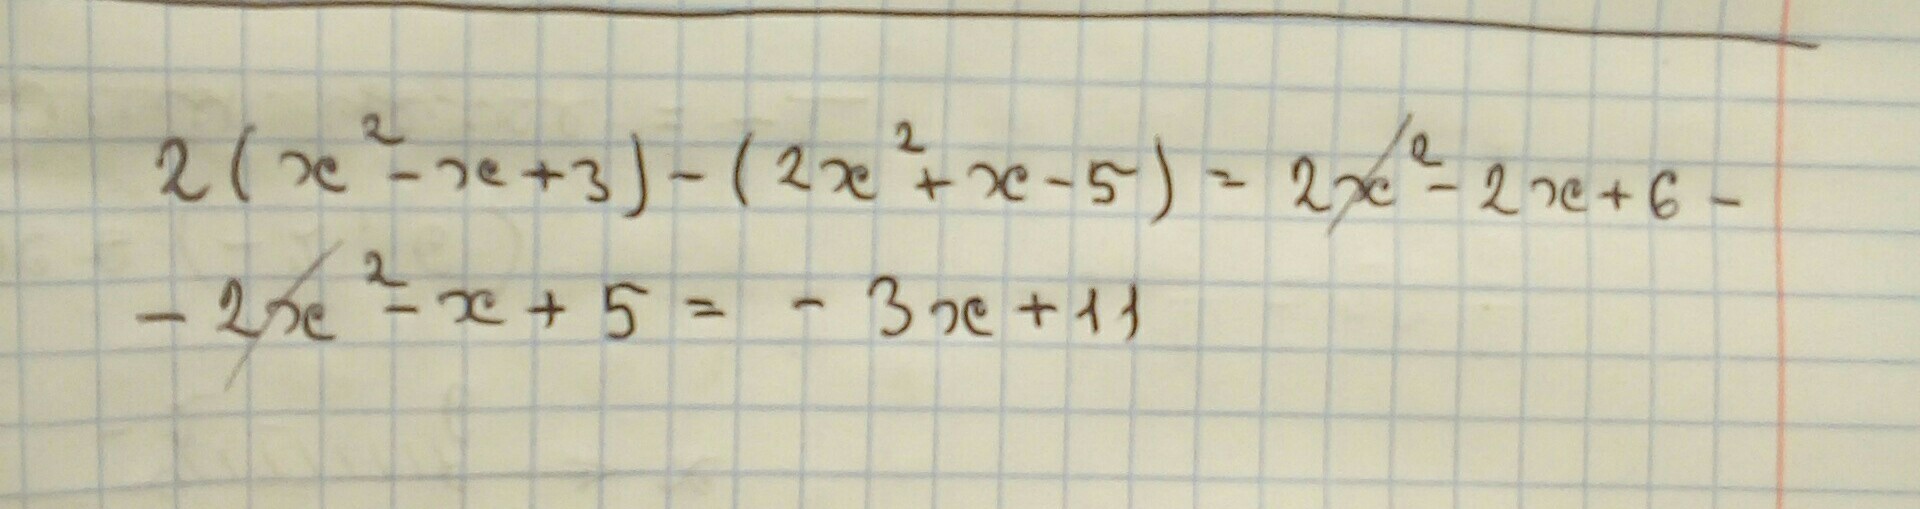 2(x²-x+3)-(2x²+x-5)=2x²-2x+6-
-2x²-x+5=-3x+11